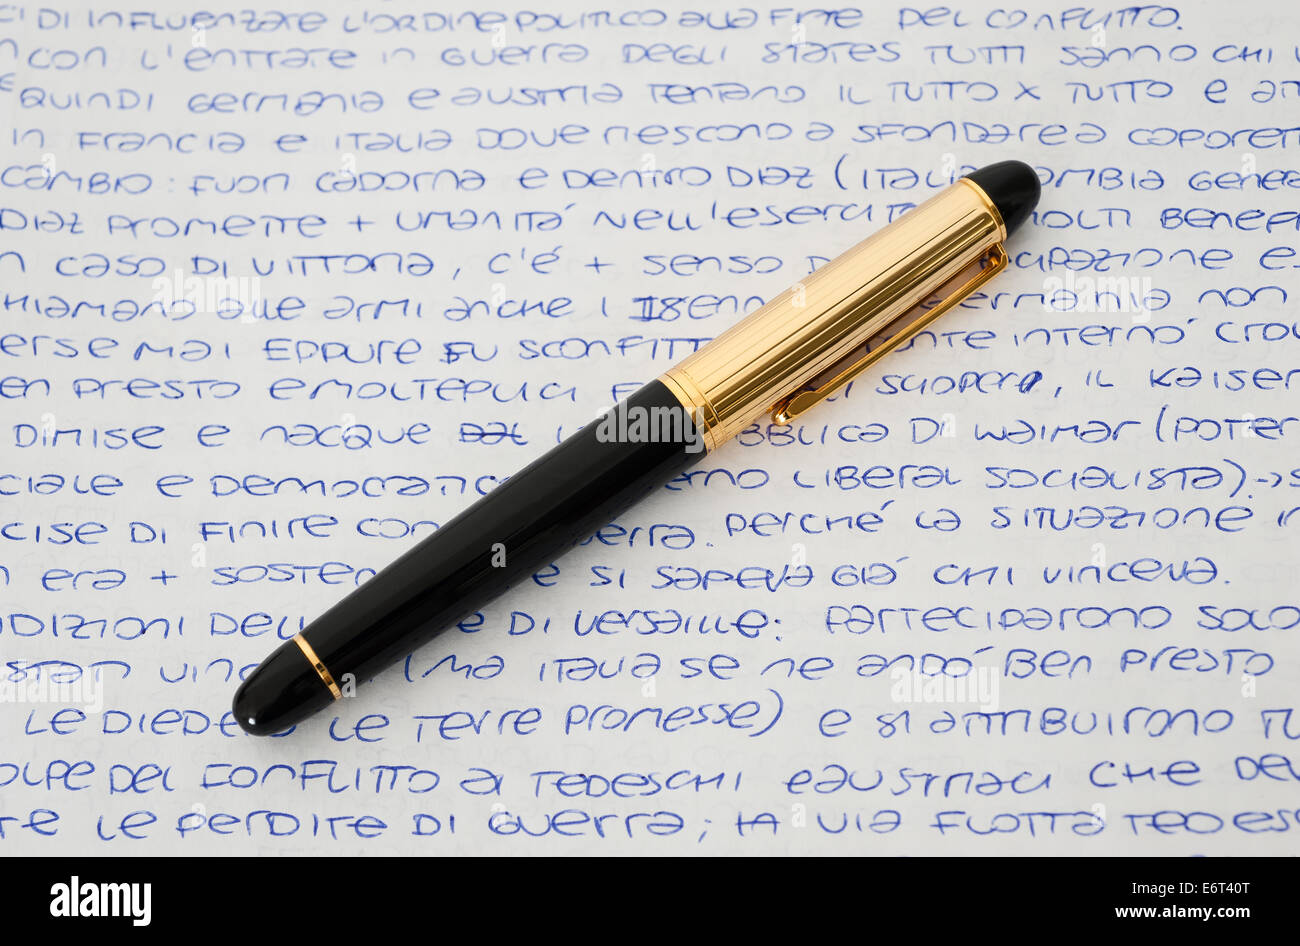 DI INFLUENZARE L'ORDINE POLITICO ALLA FINE DEL CONFLITTO.
CON L'ENTRATE IN GUERRA DEGLI STATES TUTTI SANNO CHI
E QUINDI GERMANIA E AUSTRIA TENTANO IL TUTTO X TUTTO E
IN FRANCIA E ITALIA DOVE RIESCONO A SFONDARE A CAPORETT
CAMBIO: FUORI CADORNA E DENTRO DIAZ (ITALIA CAMBIA GENER
DIAZ PROMETTE + UMANITÁ NELL'ESERCITO MOLTI BENEF
IN CASO DI VITTORIA, C'É + SENSO DI CIPAZIONE E
CHIAMANO ALLE ARMI ANCHE I 18ENNI GERMANIA NON
ERSE MAI EPPURE FU SCONFITT FRONTE INTERNO CROL
BEN PRESTO E MOLTEPLICI SCIOPERI, IL KAISER
DIMISE E NACQUE LA REPUBBLICA DI WAIMAR (POTER
CIALE E DEMOCRATICO ERNO LIBERAL SOCIALISTA) ->S
CISE DI FINIRE CON GUERRA. PERCHÉ LA SITUAZIONE IN
N ERA + SOSTEN E SI SAPEVA GIÁ CHI VINCEVA.
NDIZIONI DELL E DI VERSAILLE: PARTECIPARONO SOLO
STATI VINC (MA ITALIA SE NE ANDÓ BEN PRESTO
LE DIEDERO LE TERRE PROMESSE) E SI ATTRIBUIRONO TU
OLPE DEL CONFLITTO AI TEDESCHI E AUSTRIACI CHE DEV
TE LE PERDITE DI GUERRA; IA VIA FLOTTA TEDES
alamy
alamy
Image ID: E6T40T
www.alamy.com